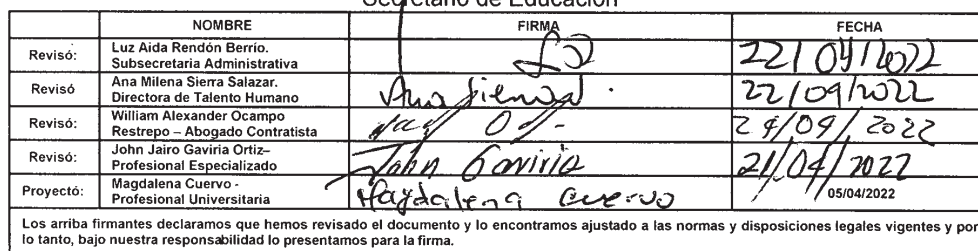 Secretario de Educación
NOMBRE FIRMA FECHA
Revisó: Luz Aida Rendón Berrío. Subsecretaria Administrativa 22/04/2022
Revisó Ana Milena Sierra Salazar. Directora de Talento Humano Ana Sierra S. 22/04/2022
Revisó: William Alexander Ocampo Restrepo – Abogado Contratista
Revisó: John Jairo Gaviria Ortiz– Profesional Especializado John Gaviria 21/04/2022
Proyectó: Magdalena Cuervo - Profesional Universitaria Magdalena Cuervo 05/04/2022
Los arriba firmantes declaramos que hemos revisado el documento y lo encontramos ajustado a las normas y disposiciones legales vigentes y por
lo tanto, bajo nuestra responsabilidad lo presentamos para la firma.